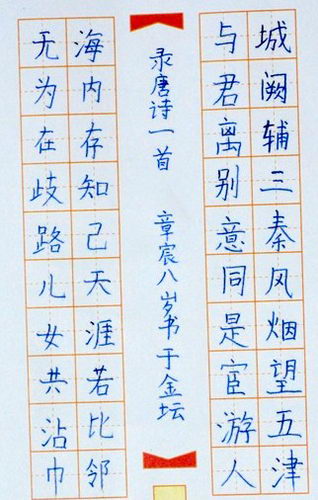 城阙辅三秦风烟望五津
与君离别意同是宦游人
录唐诗一首 章宸八岁书于金坛
海内存知己天涯若比邻
无为在歧路儿女共沾巾